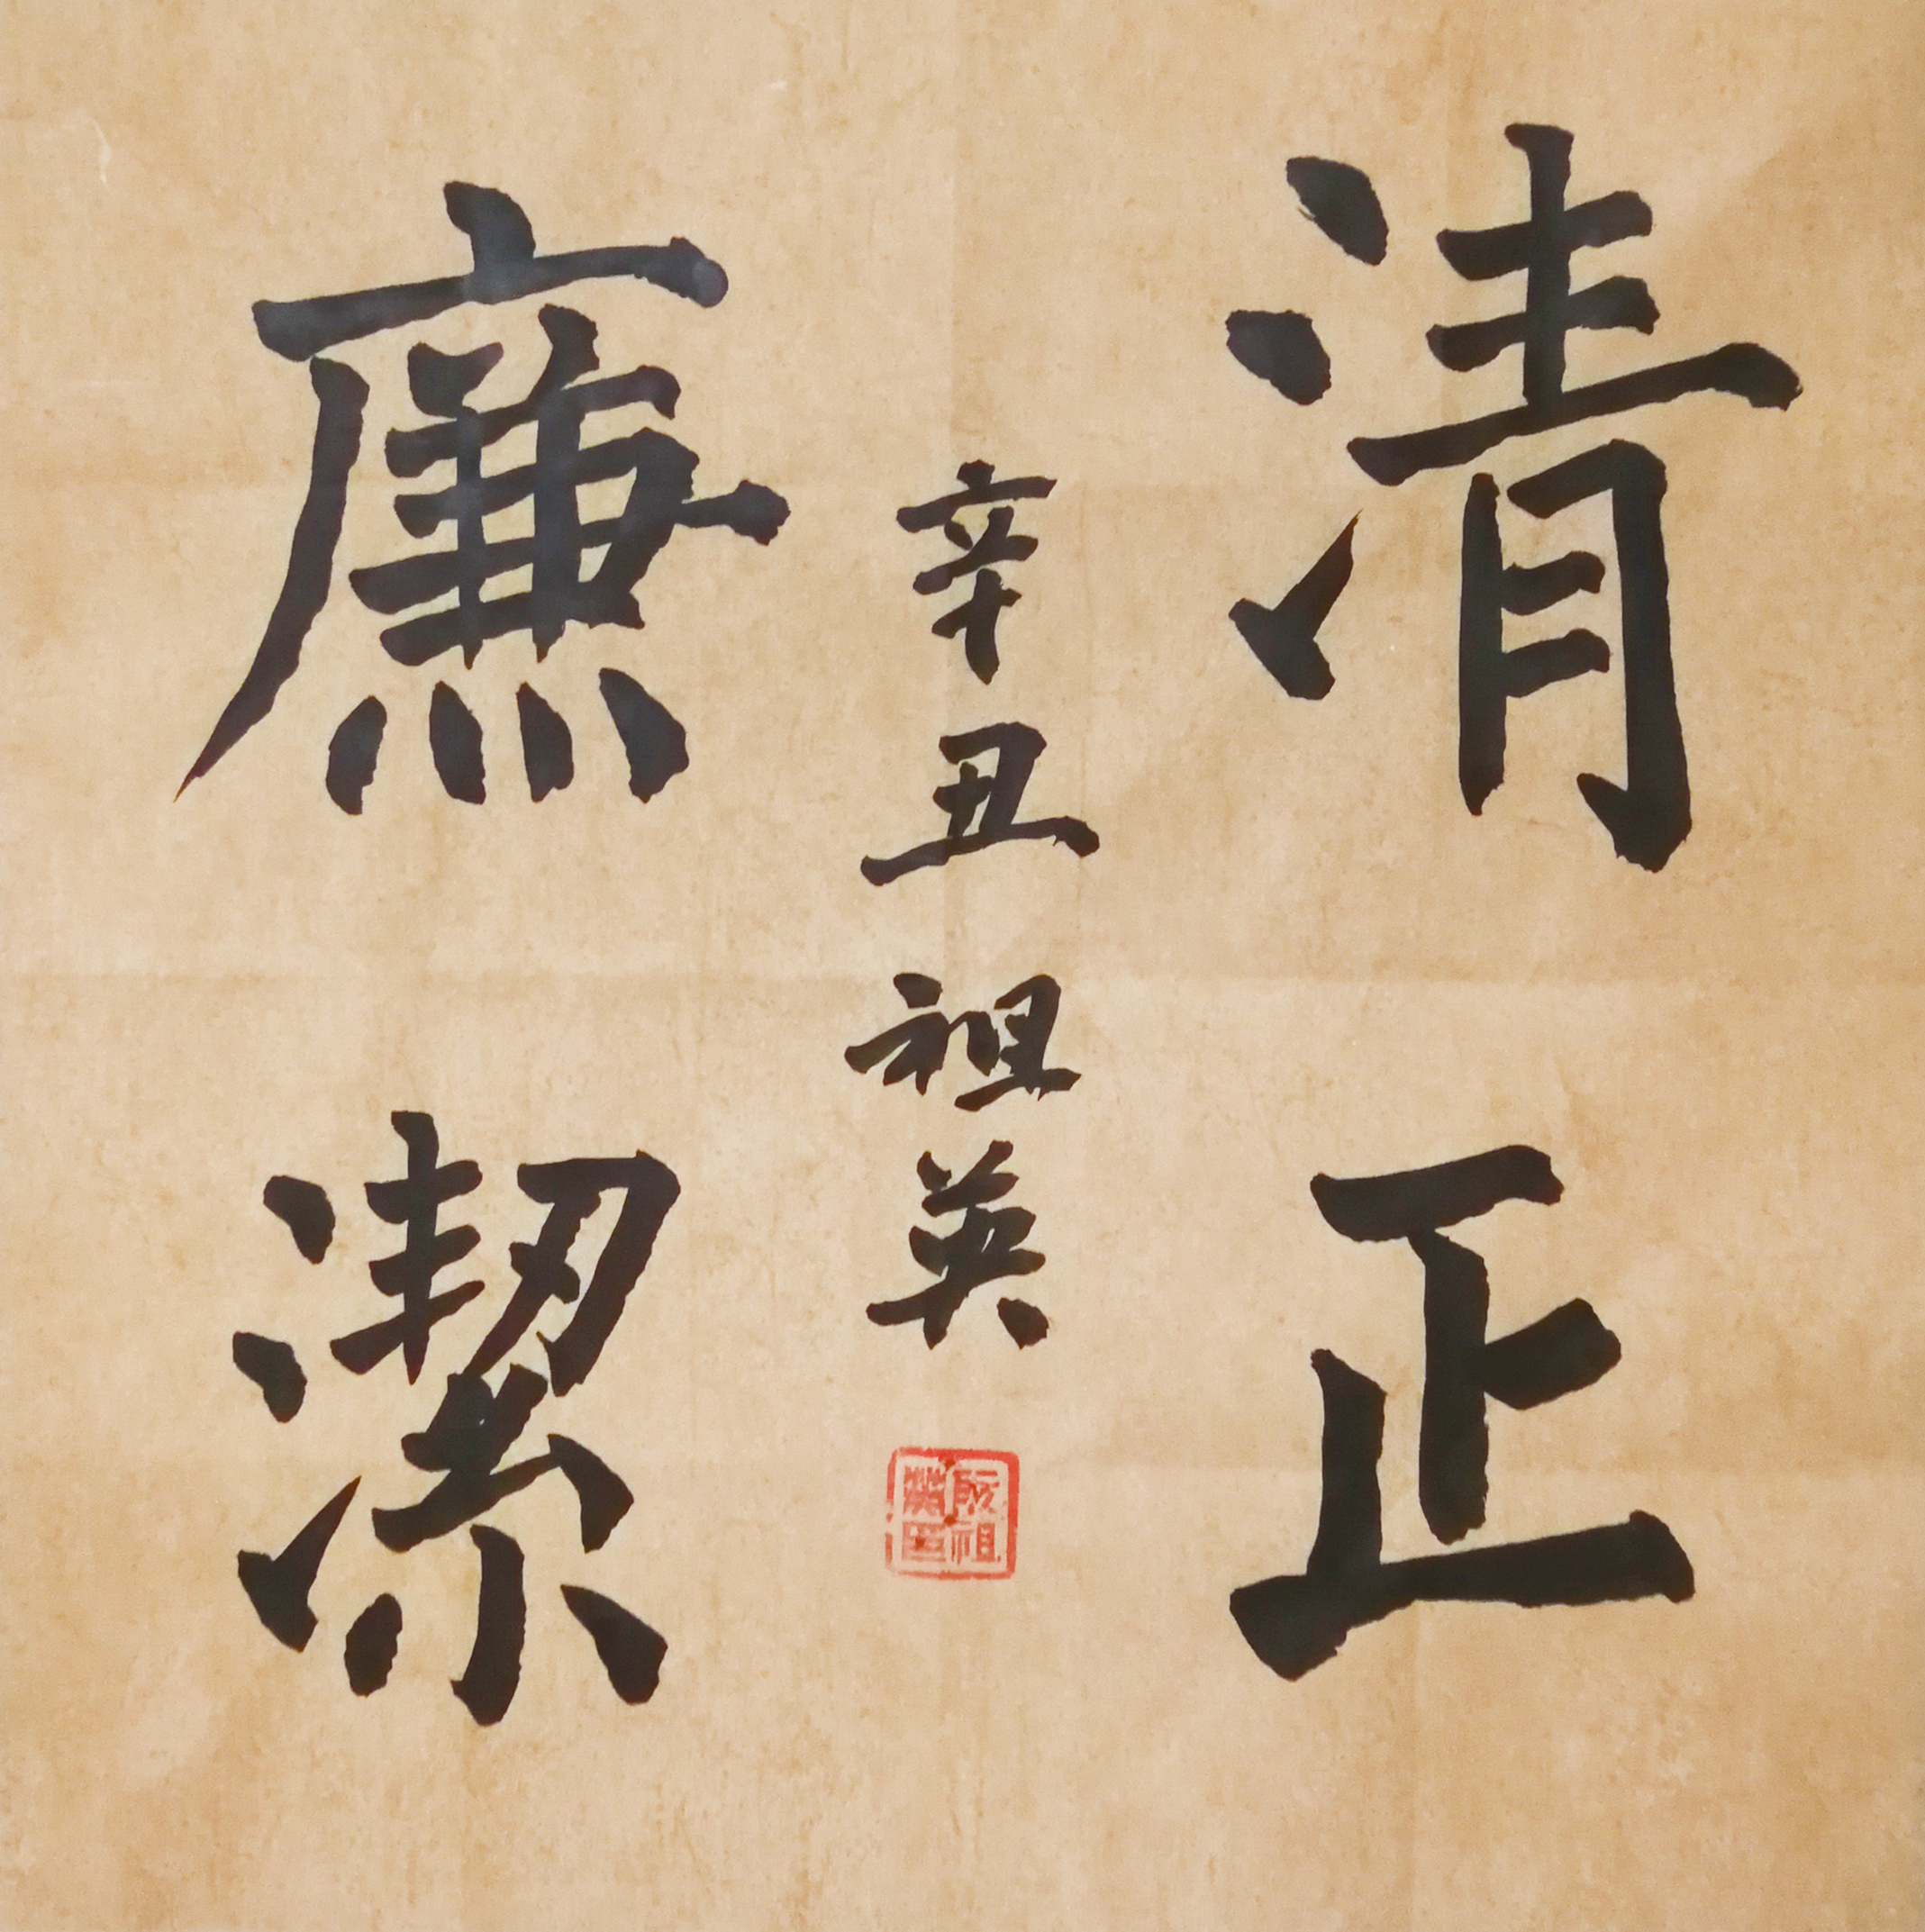 清正
廉潔
辛丑祖英
阮祖
英印